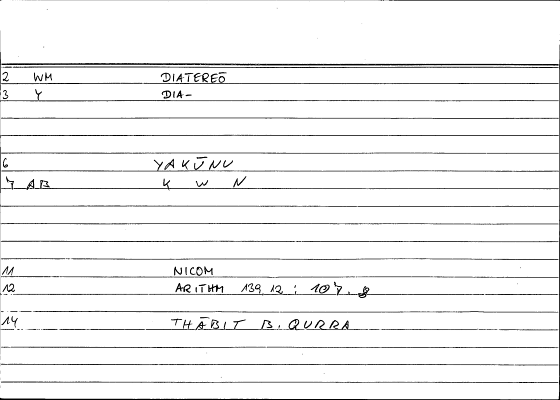 2 WM DIATEREŌ
3 Y DIA-
6 YAKŪNU
7 AB K W N
11 NICOM
12 ARITHM 139, 12 : 107. 8
14 THĀBIT B. QURRA